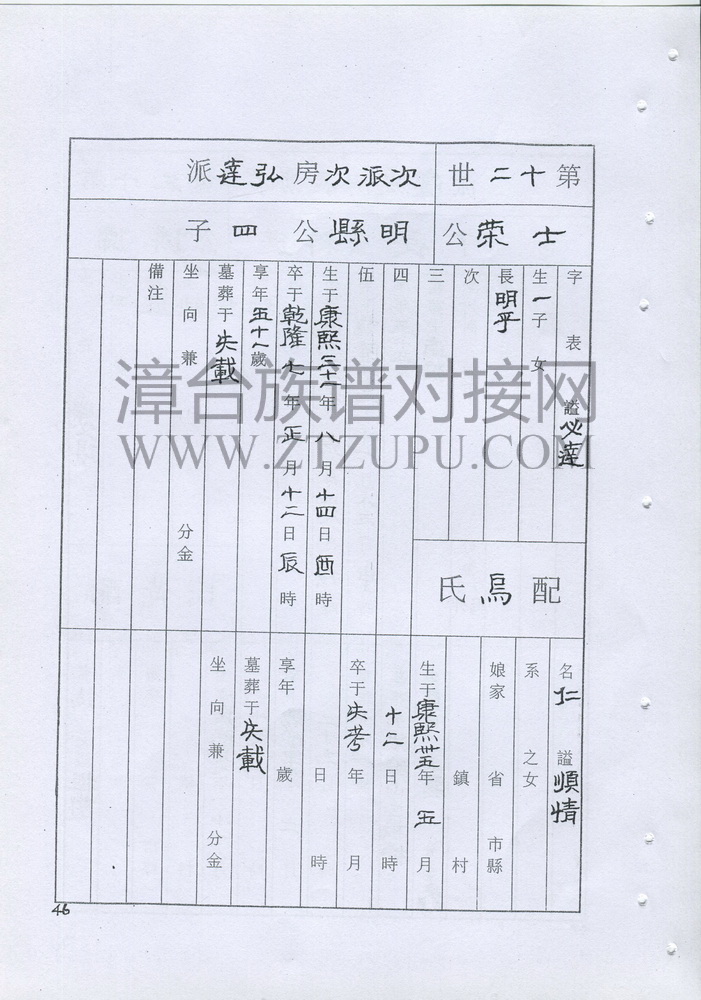 第十二世
次派次房弘達派
士荣公
明縣公四子
字 表 謚必達
生一子 女
長明孚
次
三
四
伍
生于康熙三十一年八月十四日酉時
卒于乾隆七年正月十二日辰時
享年五十一歲
墓葬于失載
坐向兼 分金
備注
配烏氏
名仁 謚順情
系 之女
娘家 省 市縣
鎮 村
生于康熙卅五年五月
十二日 時
卒于失考年 月
日 時
享年 歲
墓葬于失載
坐向兼 分金
46
漳台族谱对接网
WWW.ZTZUPU.COM